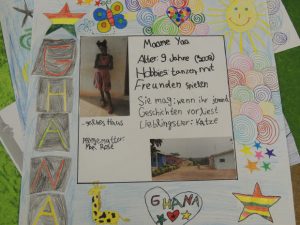 GHANA
Maame Yaa
Alter: 9 Jahre (2008)
Hobbies: tanzen, mit
Freunden spielen
Sie mag: wenn ihr jemand
Geschichten vorliest
Lieblingstier: Katze
gelbes Haus
Pflegemutter:
Rose
GHANA